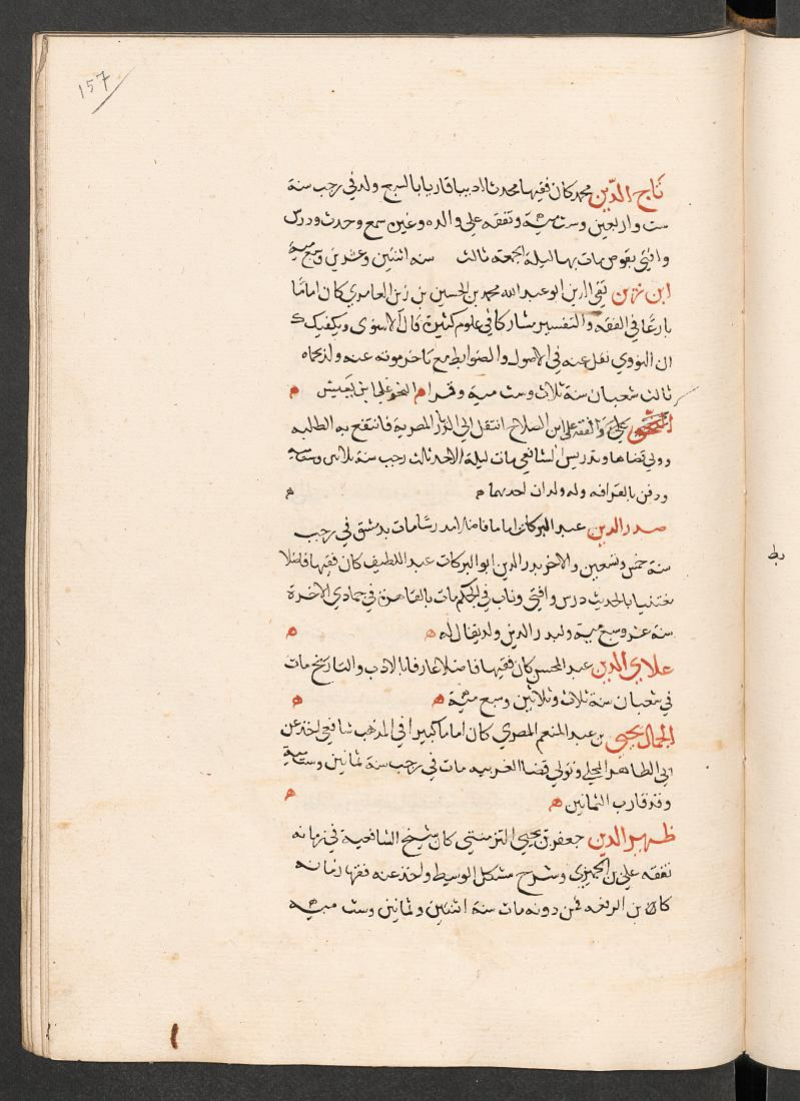 157
تاج الدين محمد كان فقيها محدثا اديبا قاريا بالسبع ولد في رجب سنة
ست واربعين وست مية وتفقه على والده وغيره سمع وحدث ودرس
وافتى بقوص مات بها ليلة الجمعة ثالث سنة اثنتين وعشرين وسبع مية
ابن رزين تقي الدين ابو عبد الله محمد بن الحسين بن رزين العامري كان اماما
بارعا في الفقه والتفسير مشاركا في علوم كثيرة قال الاسنوي ويكفيك
ان النووي نقل عنه في الاصول والضوابط مع تاخر موته عنه ولد بحماه
ثالث شعبان سنة ثلاث وست مية وقرا النحو على ابن يعيش
والفقه على ابن الصلاح انتقل الى الديار المصرية فانتفع به الطلبه
وولي قضاها وتدريس الشافعي مات ليلة الاحد ثالث رجب سنة
ودفن بالقرافه وله ولدان احدهما
صدر الدين عبد البر كان اماما فاضلا مات بدمشق في رجب
سنة خمس وتسعين والاخر بدر الدين ابو البركات عبد اللطيف كان فقيها فاضلا
معتنيا بالحديث درس وافتى وناب في الحكم مات بالقاهرة في جمادي الاخرة
سنة عشر وسبع مية ولبدر الدين ولد يقال له
علاي الدين عبد المحسن كان فقيها فاضلا عارفا بالادب والتاريخ مات
في شعبان سنة ثلاث وثلاثين وسبع مية
الجمال يحيى بن عبد المنعم المصري كان اماما كبيرا في المذهب شافعي اخذ عن
ابي الطاهر المحلي وتولي قضا الغربيه مات في رجب سنة ثمانين وستمية
وقد قارب الثمانين
ظهير الدين جعفر بن يحيى التزمنتي كان شيخ الشافعية في زمانه
تفقه على بن الجميزي وشرح مشكل الوسيط واخذ عنه فقها زمانه
كابن الرفعه فمن دونه مات سنة اثنتين وثمانين وست مية